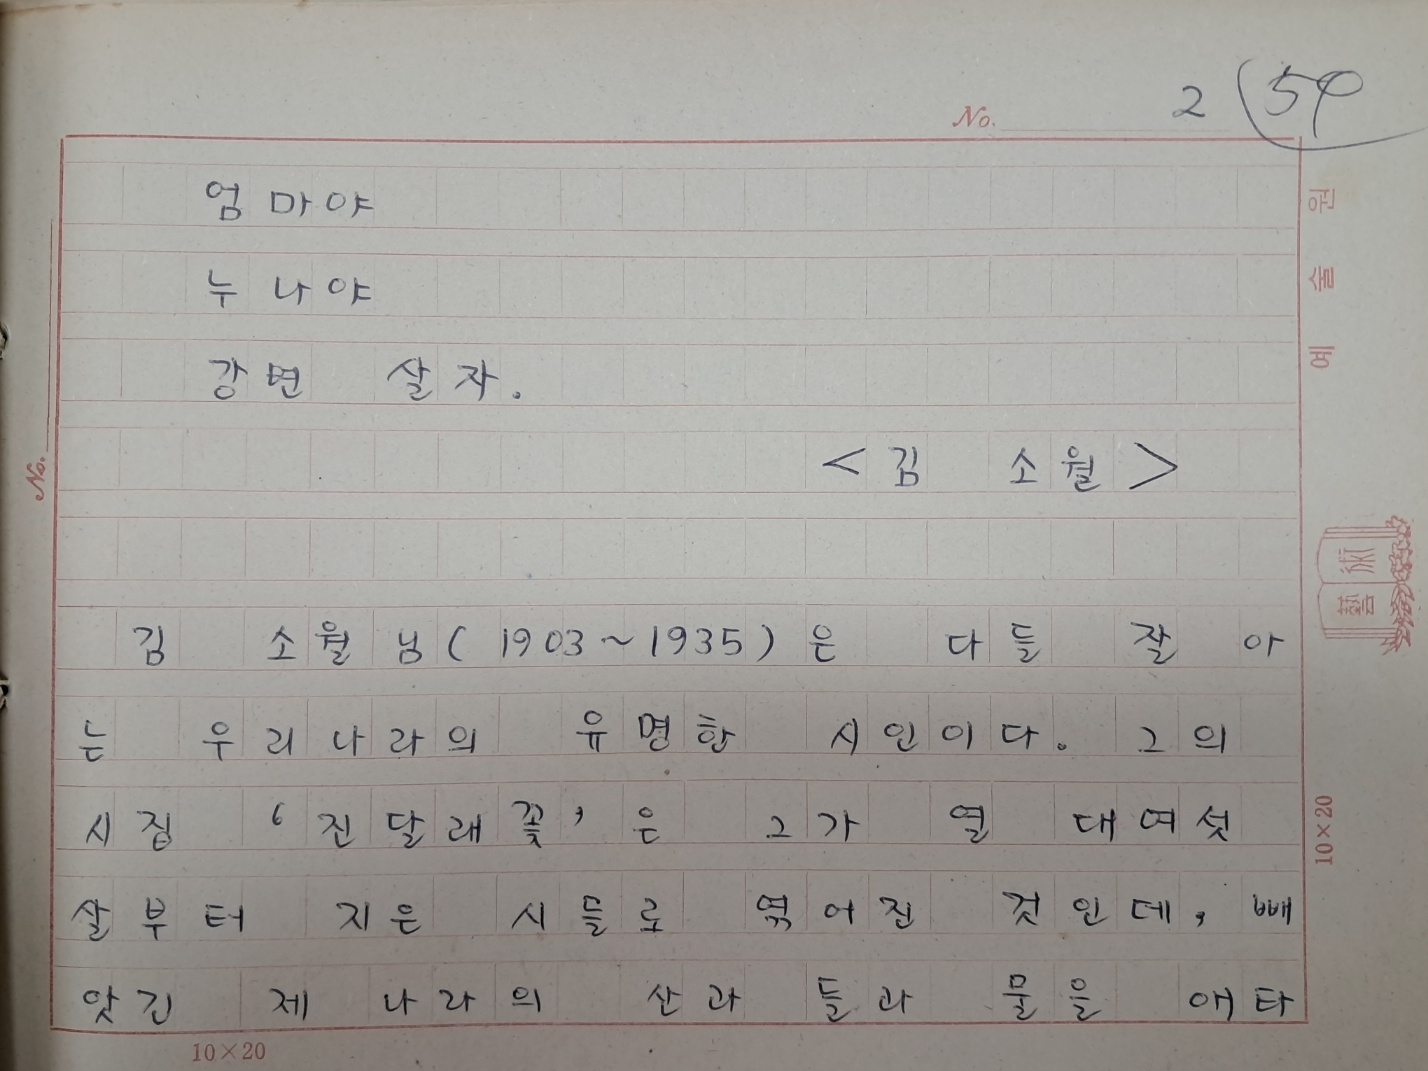 No. 2 59
엄마야
누나야
강변 살자.
<김 소월>
김 소월 님(1903~1935)은 다들 잘 아
는 우리나라의 유명한 시인이다. 그의
시집 ‘진달래꽃’은 그가 열 대여섯
살부터 지은 시들로 엮어진 것인데, 빼
앗긴 제 나라의 산과 들과 물을 애타
10×20
No.
예술원
藝術
10×20